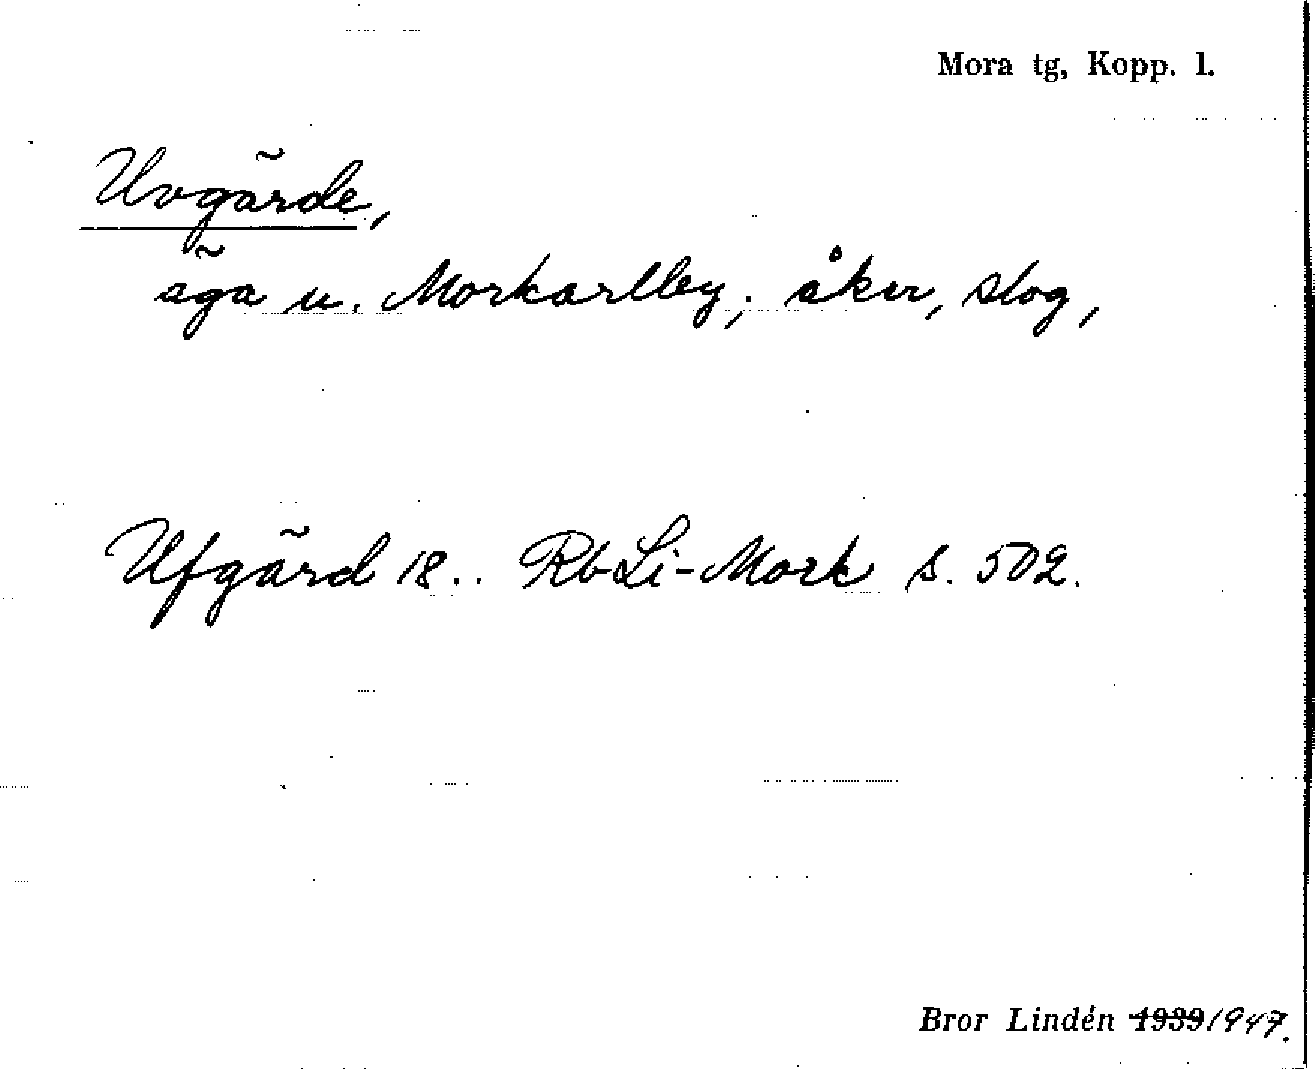 Mora tg, Kopp. l.
Uvgärde,
äga u. Morkarlby; åker, slog,
Ufgärd 18.. Rb Li-Mork s. 502.
Bror Lindén 1939 1947.